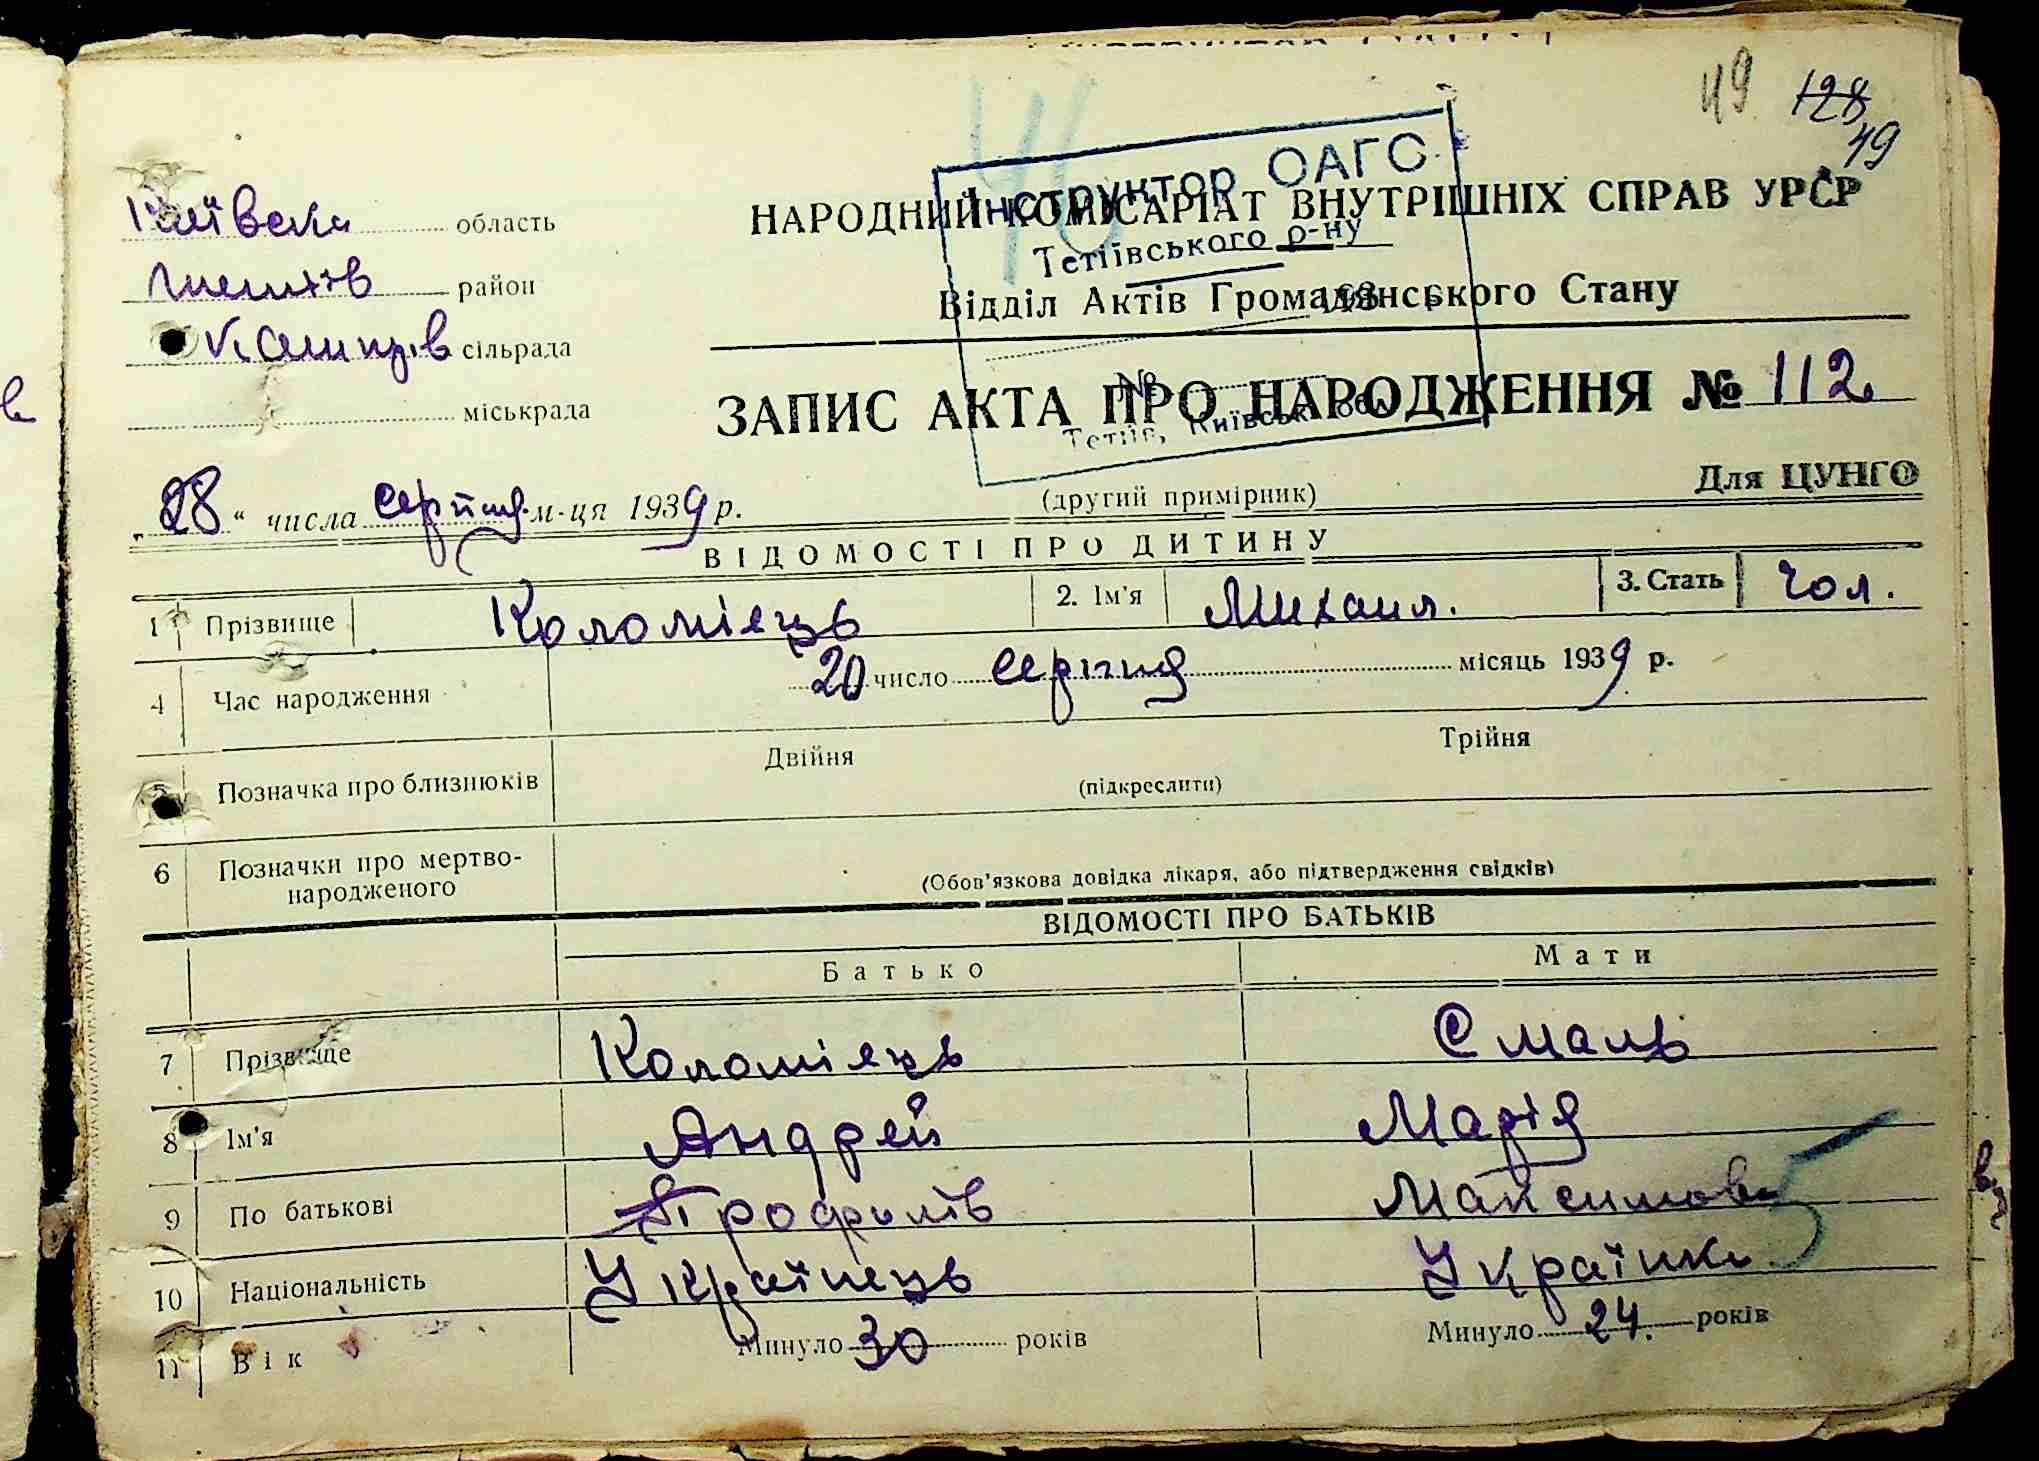 49 128
49
Інструктор ОАГС
Київська область
НАРОДНИЙ КОМІСАРІАТ ВНУТРІШНІХ СПРАВ УРСР
Тетіївського р-ну
район
Відділ Актів Громадянського Стану
193 р.
Кашперів сільрада
міськрада
ЗАПИС АКТА ПРО НАРОДЖЕННЯ № 112
№
Тетіїв, Київськ. обл.
Для ЦУНГО
„28“ числа серпня м-ця 1939 р.
(другий примірник)
ВІДОМОСТІ ПРО ДИТИНУ
1 Прізвище Коломієць 2. Ім'я Михаил. 3. Стать чол.
4 Час народження 20 число серпня місяць 1939 р.
5 Позначка про близнюків Двійня Трійня
(підкреслити)
6 Позначки про мертво-
народженого
(Обов'язкова довідка лікаря, або підтвердження свідків)
ВІДОМОСТІ ПРО БАТЬКІВ
Батько Мати
7 Прізвище Коломієць Смаль
8 Ім'я Андрей Марія
9 По батькові Максимова
10 Національність Українець Українка
11 Вік Минуло 30 років Минуло 24. років